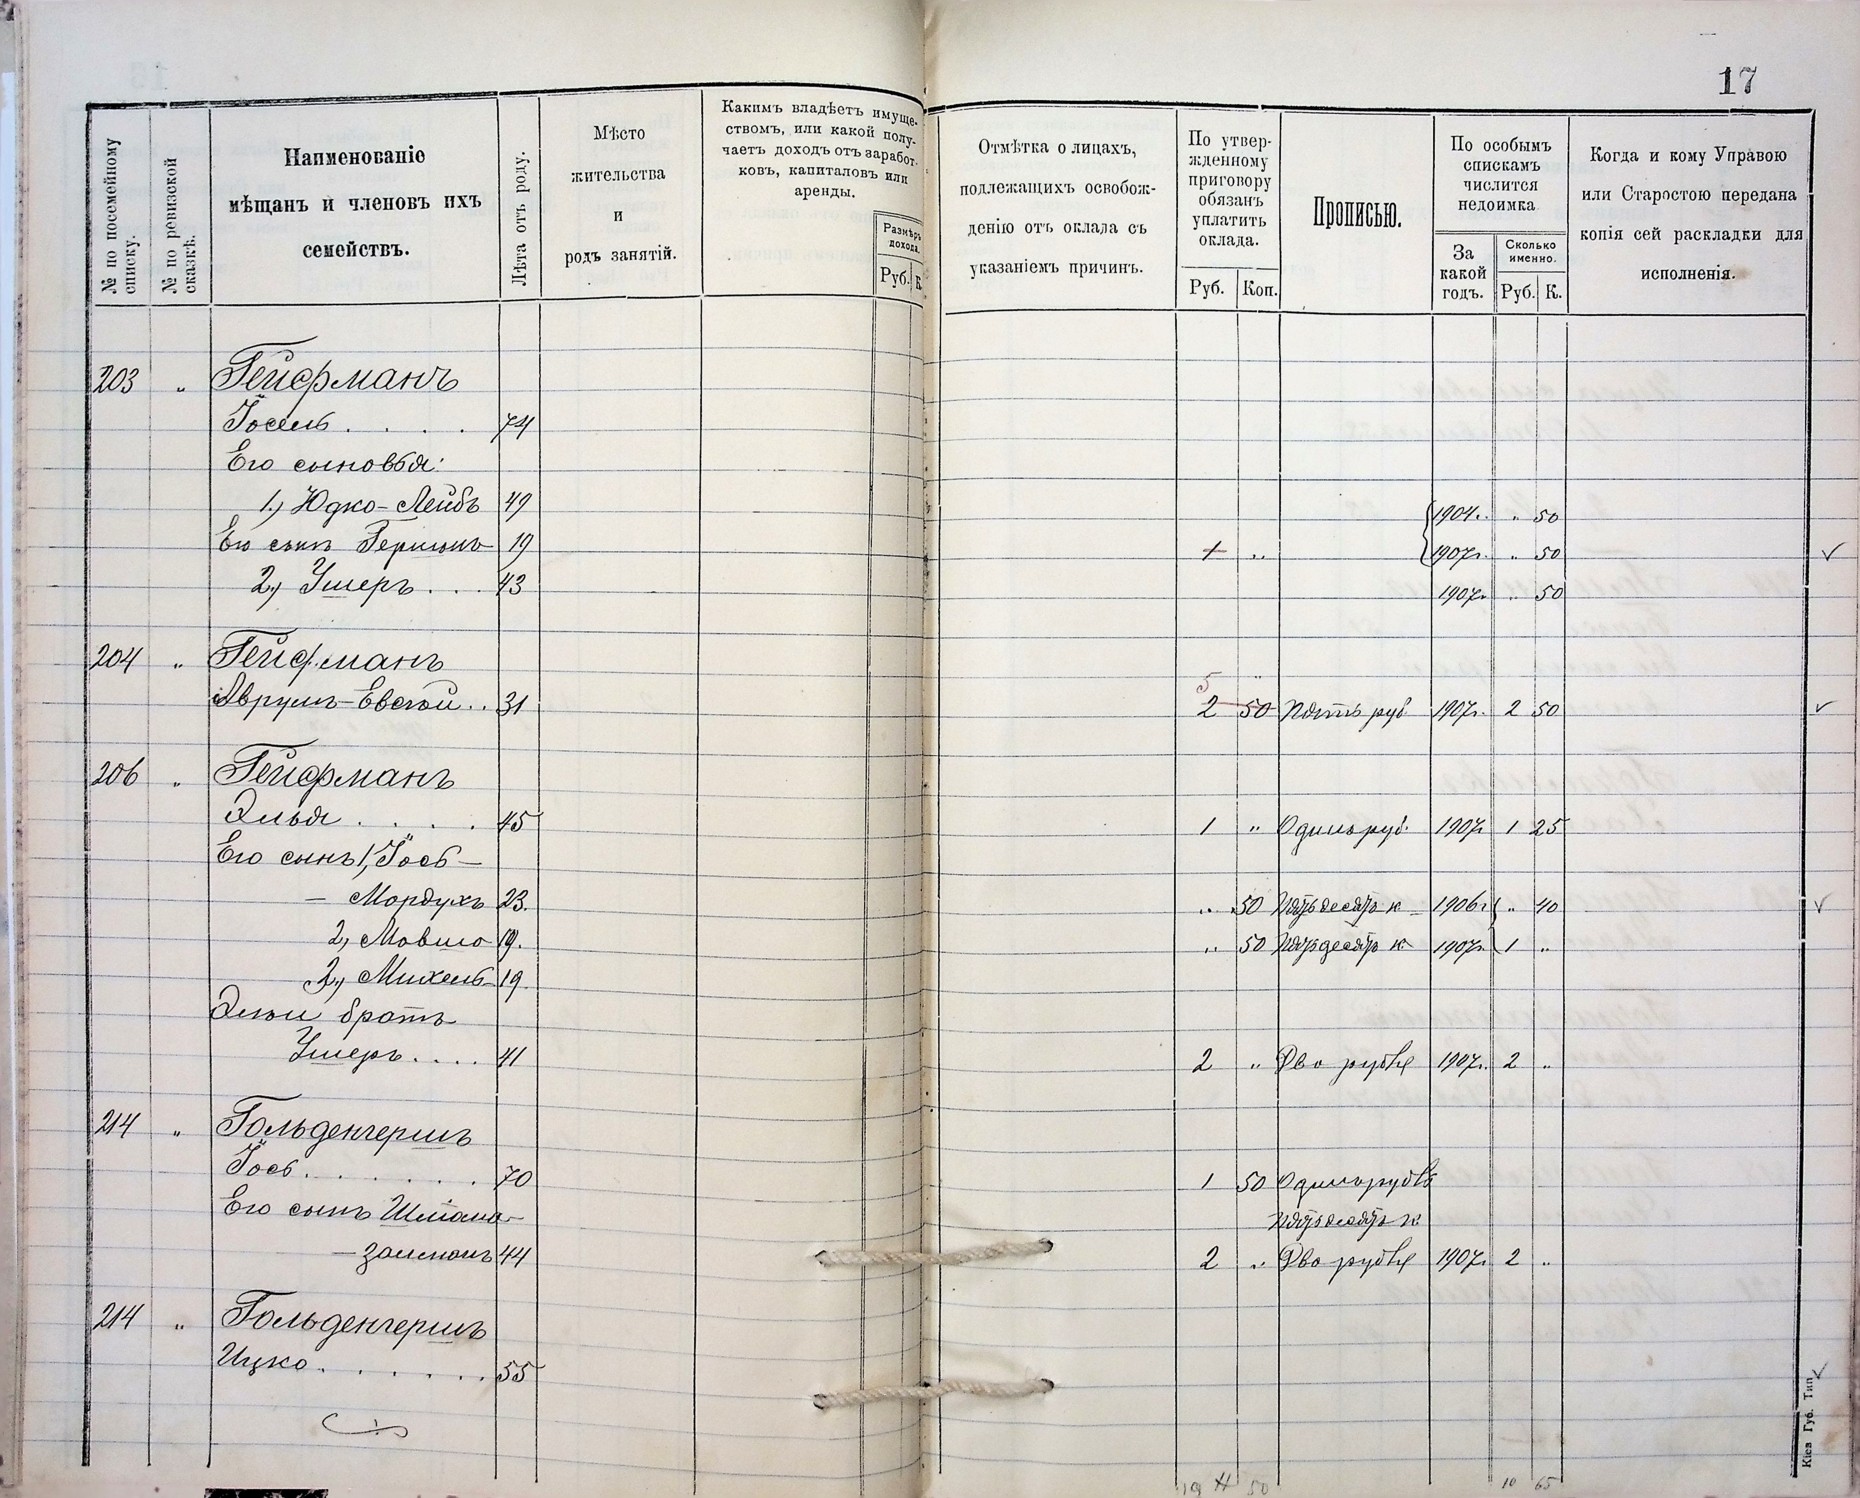 17
№ по посемейному списку.
№ по ревизской сказкѣ.
Наименованіе
мѣщанъ и членовъ ихъ
семействъ.
Лѣта отъ роду.
Мѣсто
жительства
и
родъ занятій.
Какимъ владѣетъ имуще-
ствомъ, или какой полу-
чаетъ доходъ отъ заработ-
ковъ, капиталовъ или
аренды.
Размѣръ
дохода.
Руб. К.
Отмѣтка о лицахъ,
подлежащихъ освобож-
денію отъ оклада съ
указаніемъ причинъ.
По утвер-
жденному
приговору
обязанъ
уплатить
оклада.
Руб. Коп.
Прописью.
По особымъ
спискамъ
числится
недоимка
За
какой
годъ.
Сколько
именно.
Руб. К.
Когда и кому Управою
или Старостою передана
копія сей раскладки для
исполненія.
203 " Гейфманъ
Іосель . . . . 74
Его сыновья:
1.) Юдко-Лейбъ 49 1904г. " 50
Его сынъ Гершонъ 19 1 " 1907г. " 50
2.) Ушеръ . . . 43 1907г. " 50
204 " Гейфманъ
5 "
Аврумъ-Евсей . . 31 2 50 Пять руб. 1907г. 2 50
206 " Гейфманъ
Элья . . . . 45 1 " Одинъ руб. 1907г. 1 25
Его сынъ 1, Іось-
- Мордухъ 23. " 50 Пятьдесятъ к 1906г. " 40
2, Мовшо 19. " 50 Пятьдесятъ к. 1907г. 1 "
3.) Михель 19.
Эльи братъ
Ушеръ . . . . 41 2 " Два рубля 1907г. 2 "
214 " Гольденгершъ
Іось . . . . . . 70 1 50 Одинъ рубль
Его сынъ Шлёма- пятьдесятъ к.
- залманъ 44 2 " Два рубля 1907г. 2 "
214 " Гольденгершъ
Ицко . . . . . . 55
19 50 10 65
Кіев Губ. Тип.